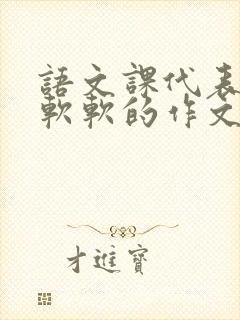 語文課代表
軟軟的作文
才進寶